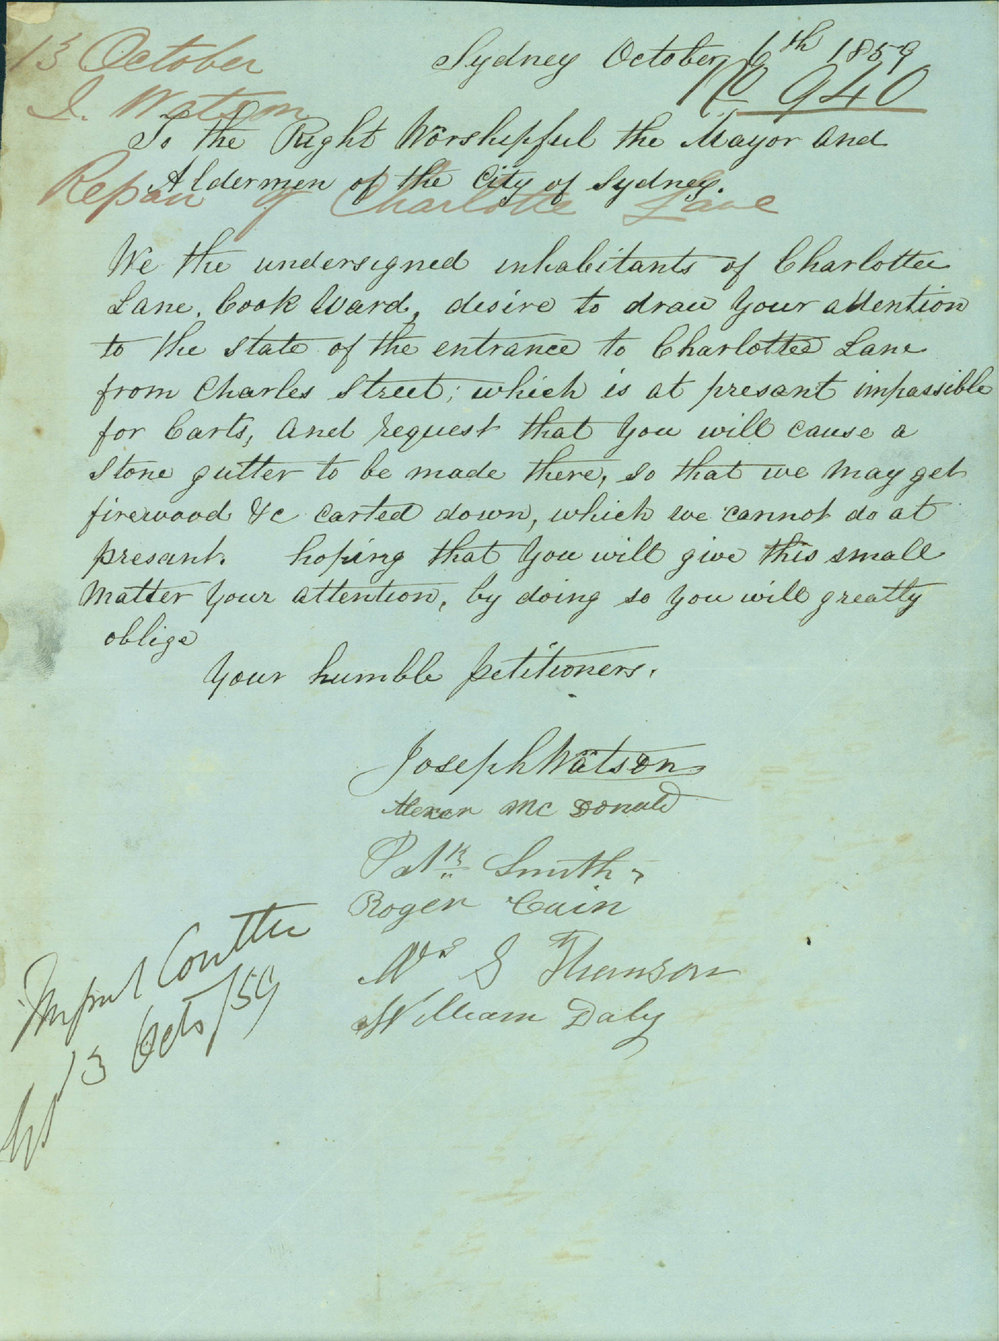 13 October
Sydney October 6th 1859
No 940
J. Watson
To the Right Worshipful the Mayor and
Aldermen of the City of Sydney.
Repair of Charlotte Lane
We the undersigned inhabitants of Charlotte
Lane, Cook Ward, desire to draw your attention
to the state of the entrance to Charlotte Lane
from Charles Street; which is at presant impassible
for Carts, and request that you will cause a
stone gutter to be made there, so that we may get
firewood &c carted down, which we cannot do at
presant. hoping that you will give this small
matter your attention, by doing so you will greatly
oblige
Your humble petitioners.
Joseph Watson
Alexar McDonald
Patk Smith
Roger Cain
S Thomson
William Daly
13 Octr /59